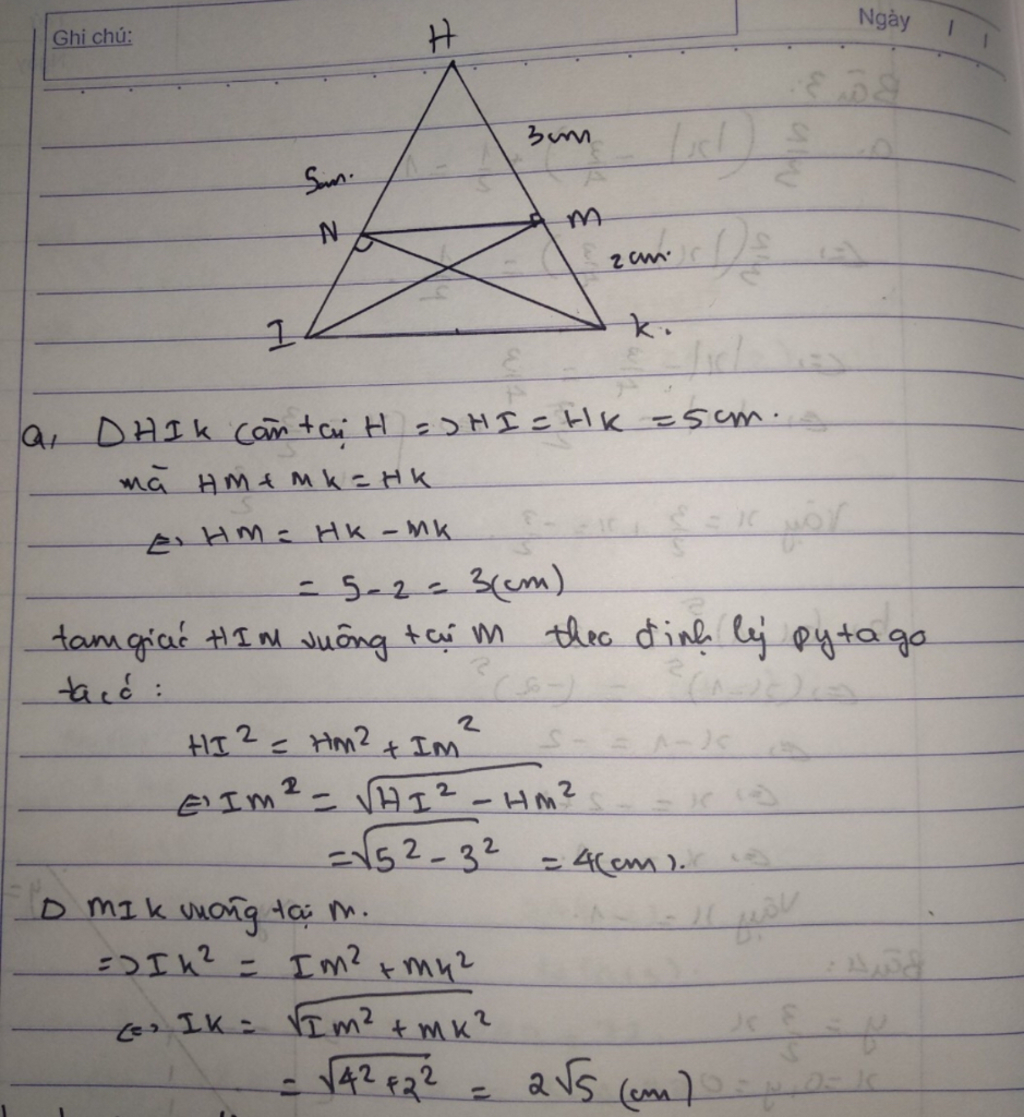 Ghi chú:
Ngày
H
3cm
5cm.
N
M
2cm.
I
K.
a, Δ HIK cân tại H => HI = HK = 5cm.
mà HM + MK = HK
<=> HM = HK - MK
= 5 - 2 = 3(cm)
tam giác HIM vuông tại M theo định lý pytago
ta có :
HI² = HM² + IM²
<=> IM² = √HI² - HM²
= √5² - 3² = 4(cm).
Δ MIK vuông tại M.
=> IK² = IM² + MK²
<=> IK = √IM² + MK²
= √4² + 2² = 2√5 (cm)